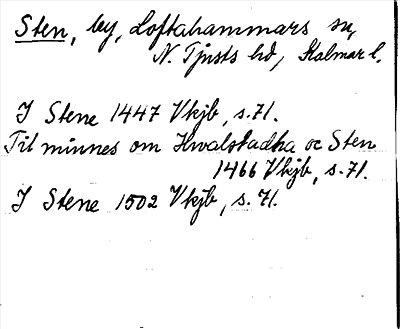 Sten, by, Loftahammars sn,
N. Tjusts hd, Kalmar l.
I Stene 1447 Vkjb, s.71.
Til minnes om Hwalstadha oc Sten
1466 Vkjb, s.71.
I Stene 1502 Vkjb, s.71.